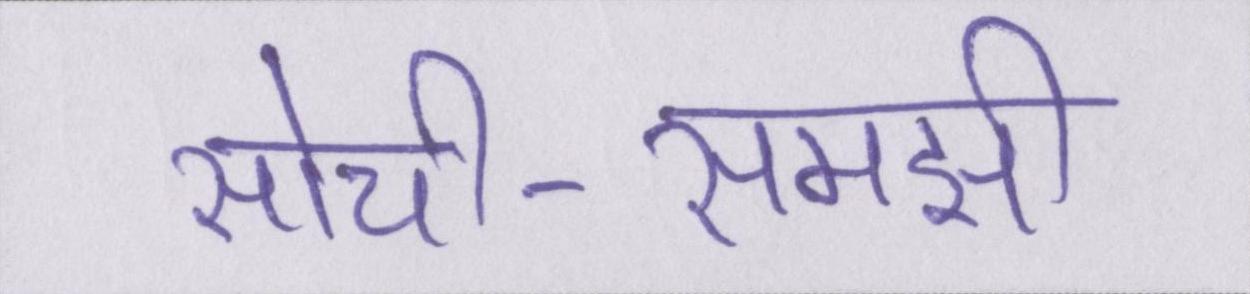 सोची-समझी